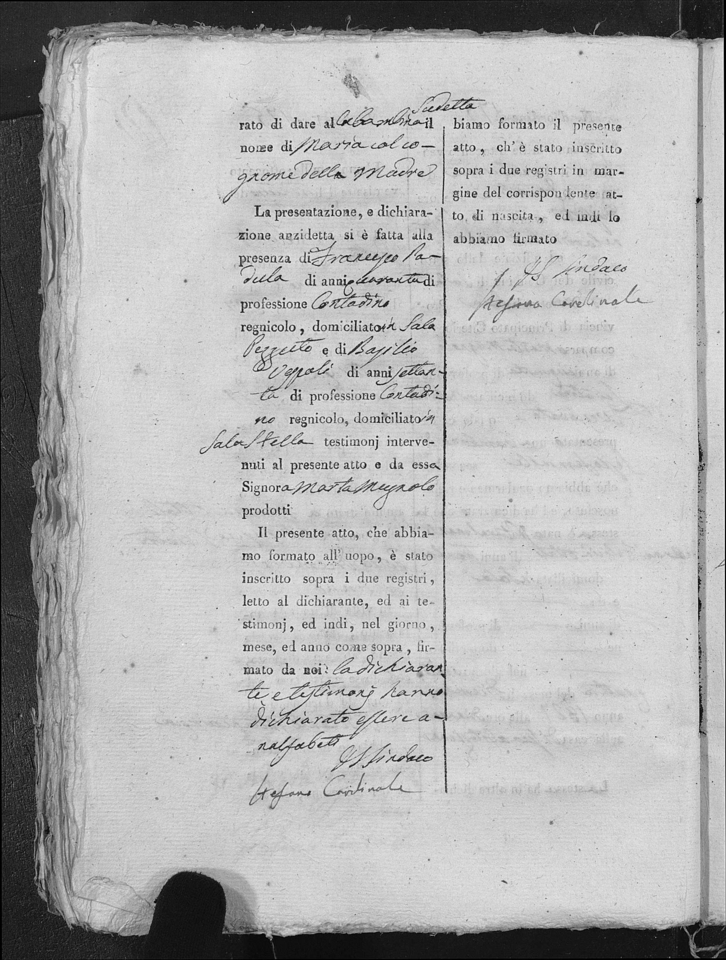 Sudetta
rato di dare al la bambina il
nome di Maria col co-
gnome della Madre
La presentazione, e dichiara-
zione anzidetta si è fatta alla
presenza di Francesco Pa-
della di anni quaranta di
professione Contadino
regnicolo, domiciliato in Sala
e di Basilio
di anni settan-
ta di professione Contadi-
no regnicolo, domiciliato in
Sala Stella testimonj interve-
nuti al presente atto e da essa
Signora Marta Mugnolo
prodotti
Il presente atto, che abbia-
mo formato all'uopo, è stato
inscritto sopra i due registri,
letto al dichiarante, ed ai te-
stimonj, ed indi, nel giorno,
mese, ed anno come sopra, fir-
mato da noi: la dichiaran
te e testimonj hanno
dichiarato essere a-
nalfabeti
Il Sindaco
Stefano Cardinale
biamo formato il presente
atto, ch'è stato inscritto
sopra i due registri in mar-
gine del corrispondente at-
to di nascita, ed indi lo
abbiamo firmato
Il Sindaco
Stefano Cardinale